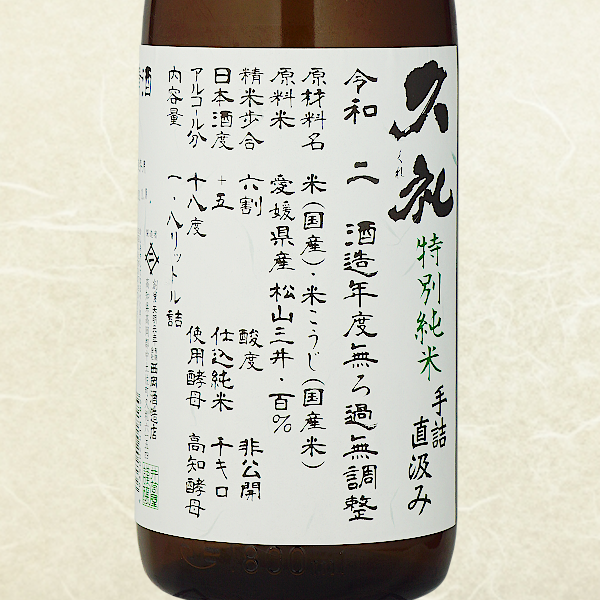 久礼
くれ
特別純米
手詰
直汲み
令和二酒造年度無ろ過無調整
原材料名 米(国産)・米こうじ(国産米)
原料米 愛媛県産松山三井・百%
精米歩合 六割 酸度 非公開
日本酒度 +五 仕込純米 千キロ
アルコール分 十八度 使用酵母 高知酵母
内容量 一・八リットル詰
西岡酒造店